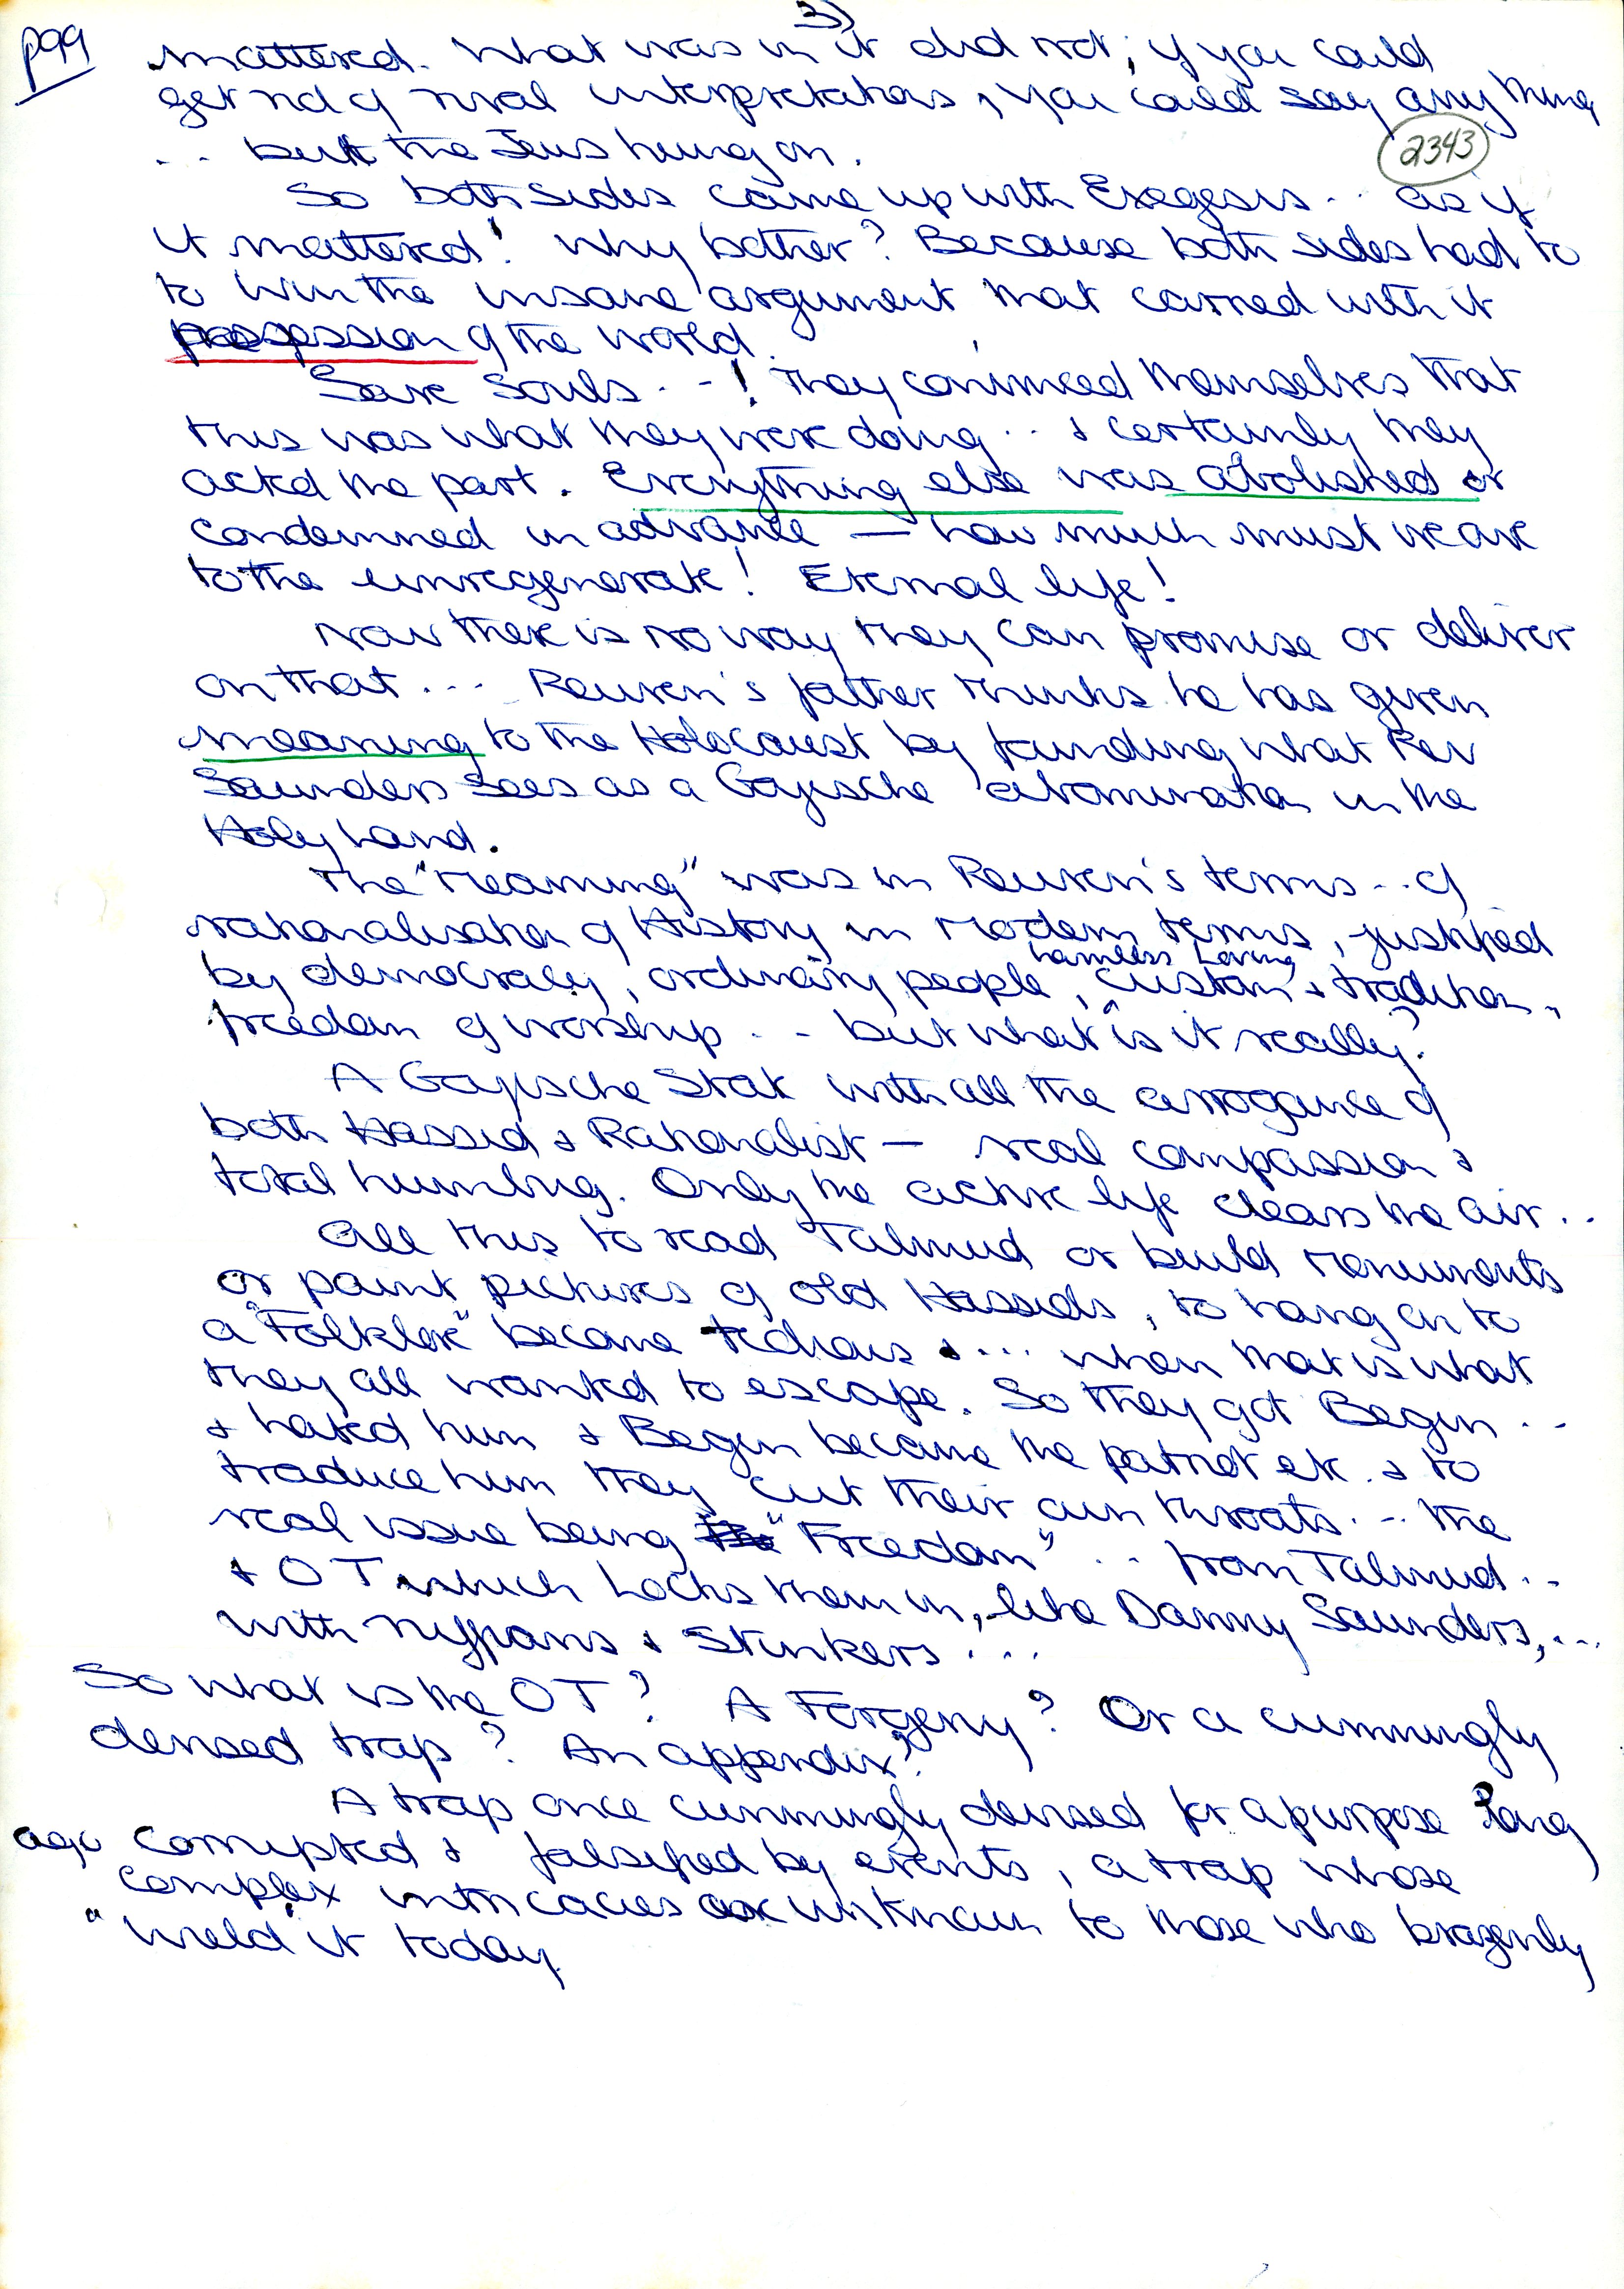 3)
p99
mattered. What was in it did not; if you could
get rid of rival interpretations, you could say anything
... but the Jews hung on.
2343
So both sides came up with Exegesis.. as if
it mattered! Why bother? Because both sides had to
to win the insane argument that carried with it
possession of the world.
Save Souls..-! They convinced themselves that
this was what they were doing.. & certainly they
acted the part. Everything else was abolished or
condemned in advance — how much must we are
to the unregenerate! Eternal life!
Now there is no way they can promise or deliver
on that... Reuven's father thinks he has given
meaning to the Holocaust by funding what Rev
Saunders sees as a Goyische abomination in the
Holy Land.
The "Meaning" was in Reuven's terms... of
rationalisation of History in Modern terms, justified
by democracy, ordinary people, harmless Loving custom & tradition,
freedom of worship... but what is it really?
A Goyische State with all the arrogance of
both Hassid & Rationalist — real compassion &
total humbug. Only the active life clears the air..
All this to read Talmud or build monuments
or paint pictures of old Hassids, to hang on to
a "Folklore" became tedious &... when that is what
they all wanted to escape. So they got Begin..
& hated him & Begin became the patriot etc. & to
traduce him they cut their own throats... the
real issue being "Freedom"... from Talmud..
& OT which Locks them in, like Danny Saunders,...
with ruffians & Stinkers...
So what is the OT? A Forgery? Or a cunningly
devised trap? An appendix?
A trap once cunningly devised for a purpose long
ago corrupted & falsified by events, a trap whose
complex intricacies are unknown to those who brazenly
"wield" it today.